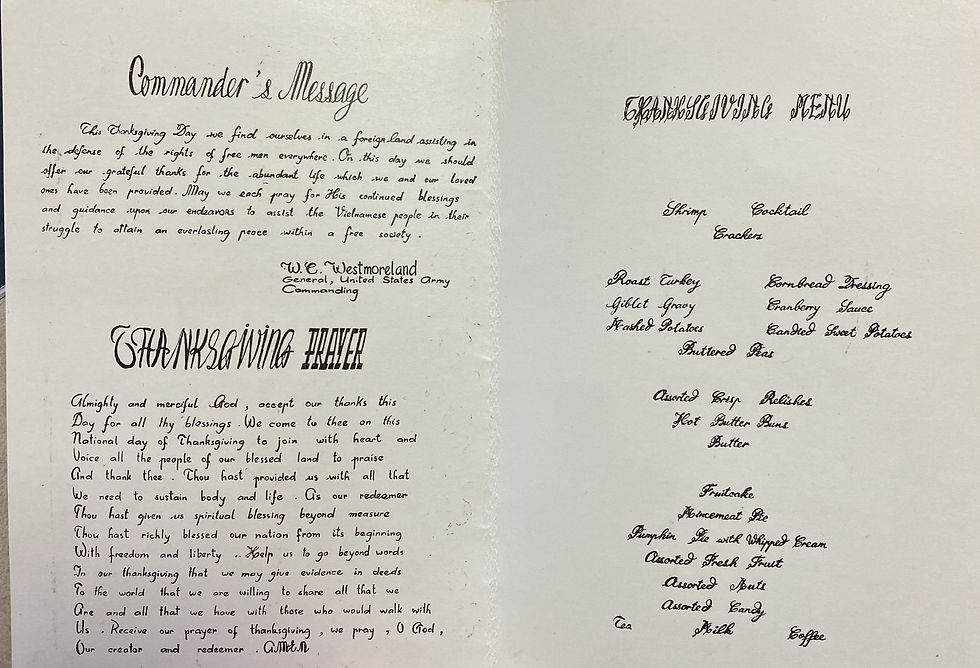 Commander's Message
This Thanksgiving Day we find ourselves in a foreign land assisting in
the defense of the rights of free men everywhere. On this day we should
offer our grateful thanks for the abundant life which we and our loved
ones have been provided. May we each pray for His continued blessings
and guidance upon our endeavors to assist the Vietnamese people in their
struggle to attain an everlasting peace within a free society.
W.C. Westmoreland
General, United States Army
Commanding
THANKSGIVING PRAYER
Almighty and merciful God, accept our thanks this
Day for all thy blessings. We come to thee on this
National day of Thanksgiving to join with heart and
Voice all the people of our blessed land to praise
And thank thee. Thou hast provided us with all that
We need to sustain body and life. As our redeemer
Thou hast given us spiritual blessing beyond measure
Thou hast richly blessed our nation from its beginning
With freedom and liberty .. Help us to go beyond words
In our thanksgiving that we may give evidence in deeds
To the world that we are willing to share all that we
Are and all that we have with those who would walk with
Us. Receive our prayer of thanksgiving, we pray, O God,
Our creator and redeemer. AMEN
THANKSGIVING MENU
Shrimp Cocktail
Crackers
Roast Turkey Cornbread Dressing
Giblet Gravy Cranberry Sauce
Mashed Potatoes Candied Sweet Potatoes
Buttered Peas
Assorted Crisp Relishes
Hot Butter Buns
Butter
Fruitcake
Mincemeat Pie
Pumpkin Pie with Whipped Cream
Assorted Fresh Fruit
Assorted Nuts
Assorted Candy
Tea Milk Coffee